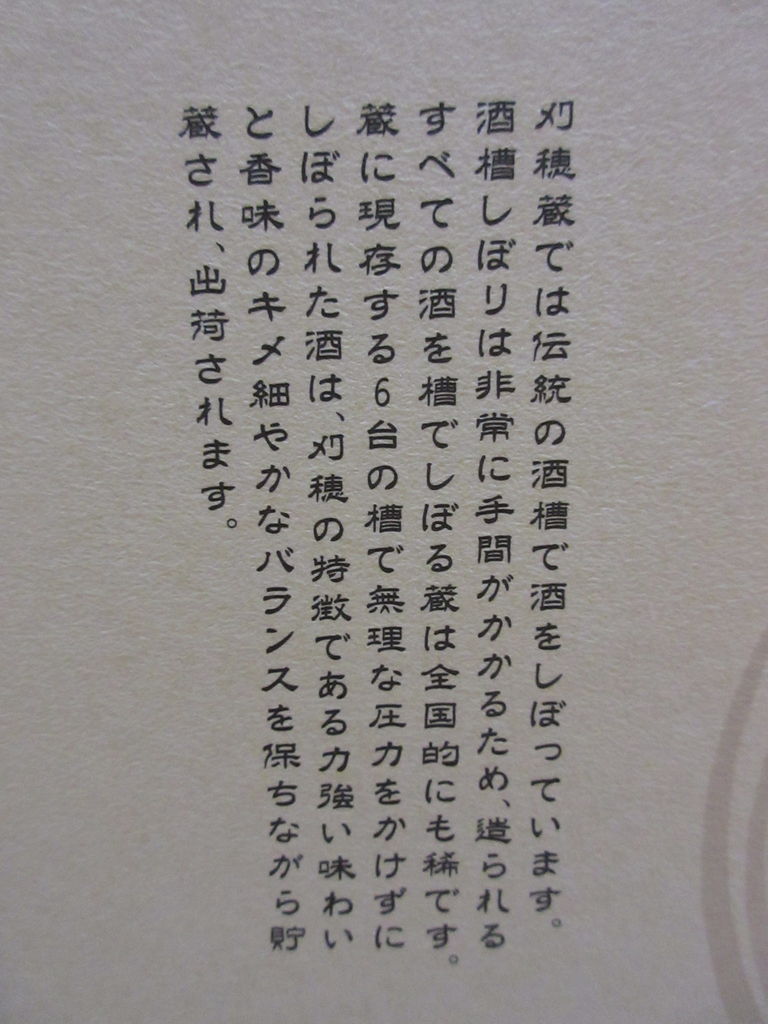 刈穂蔵では伝統の酒槽で酒をしぼっています。
酒槽しぼりは非常に手間がかかるため、造られる
すべての酒を槽でしぼる蔵は全国的にも稀です。
蔵に現存する6台の槽で無理な圧力をかけずに
しぼられた酒は、刈穂の特徴である力強い味わい
と香味のキメ細やかなバランスを保ちながら貯
蔵され、出荷されます。